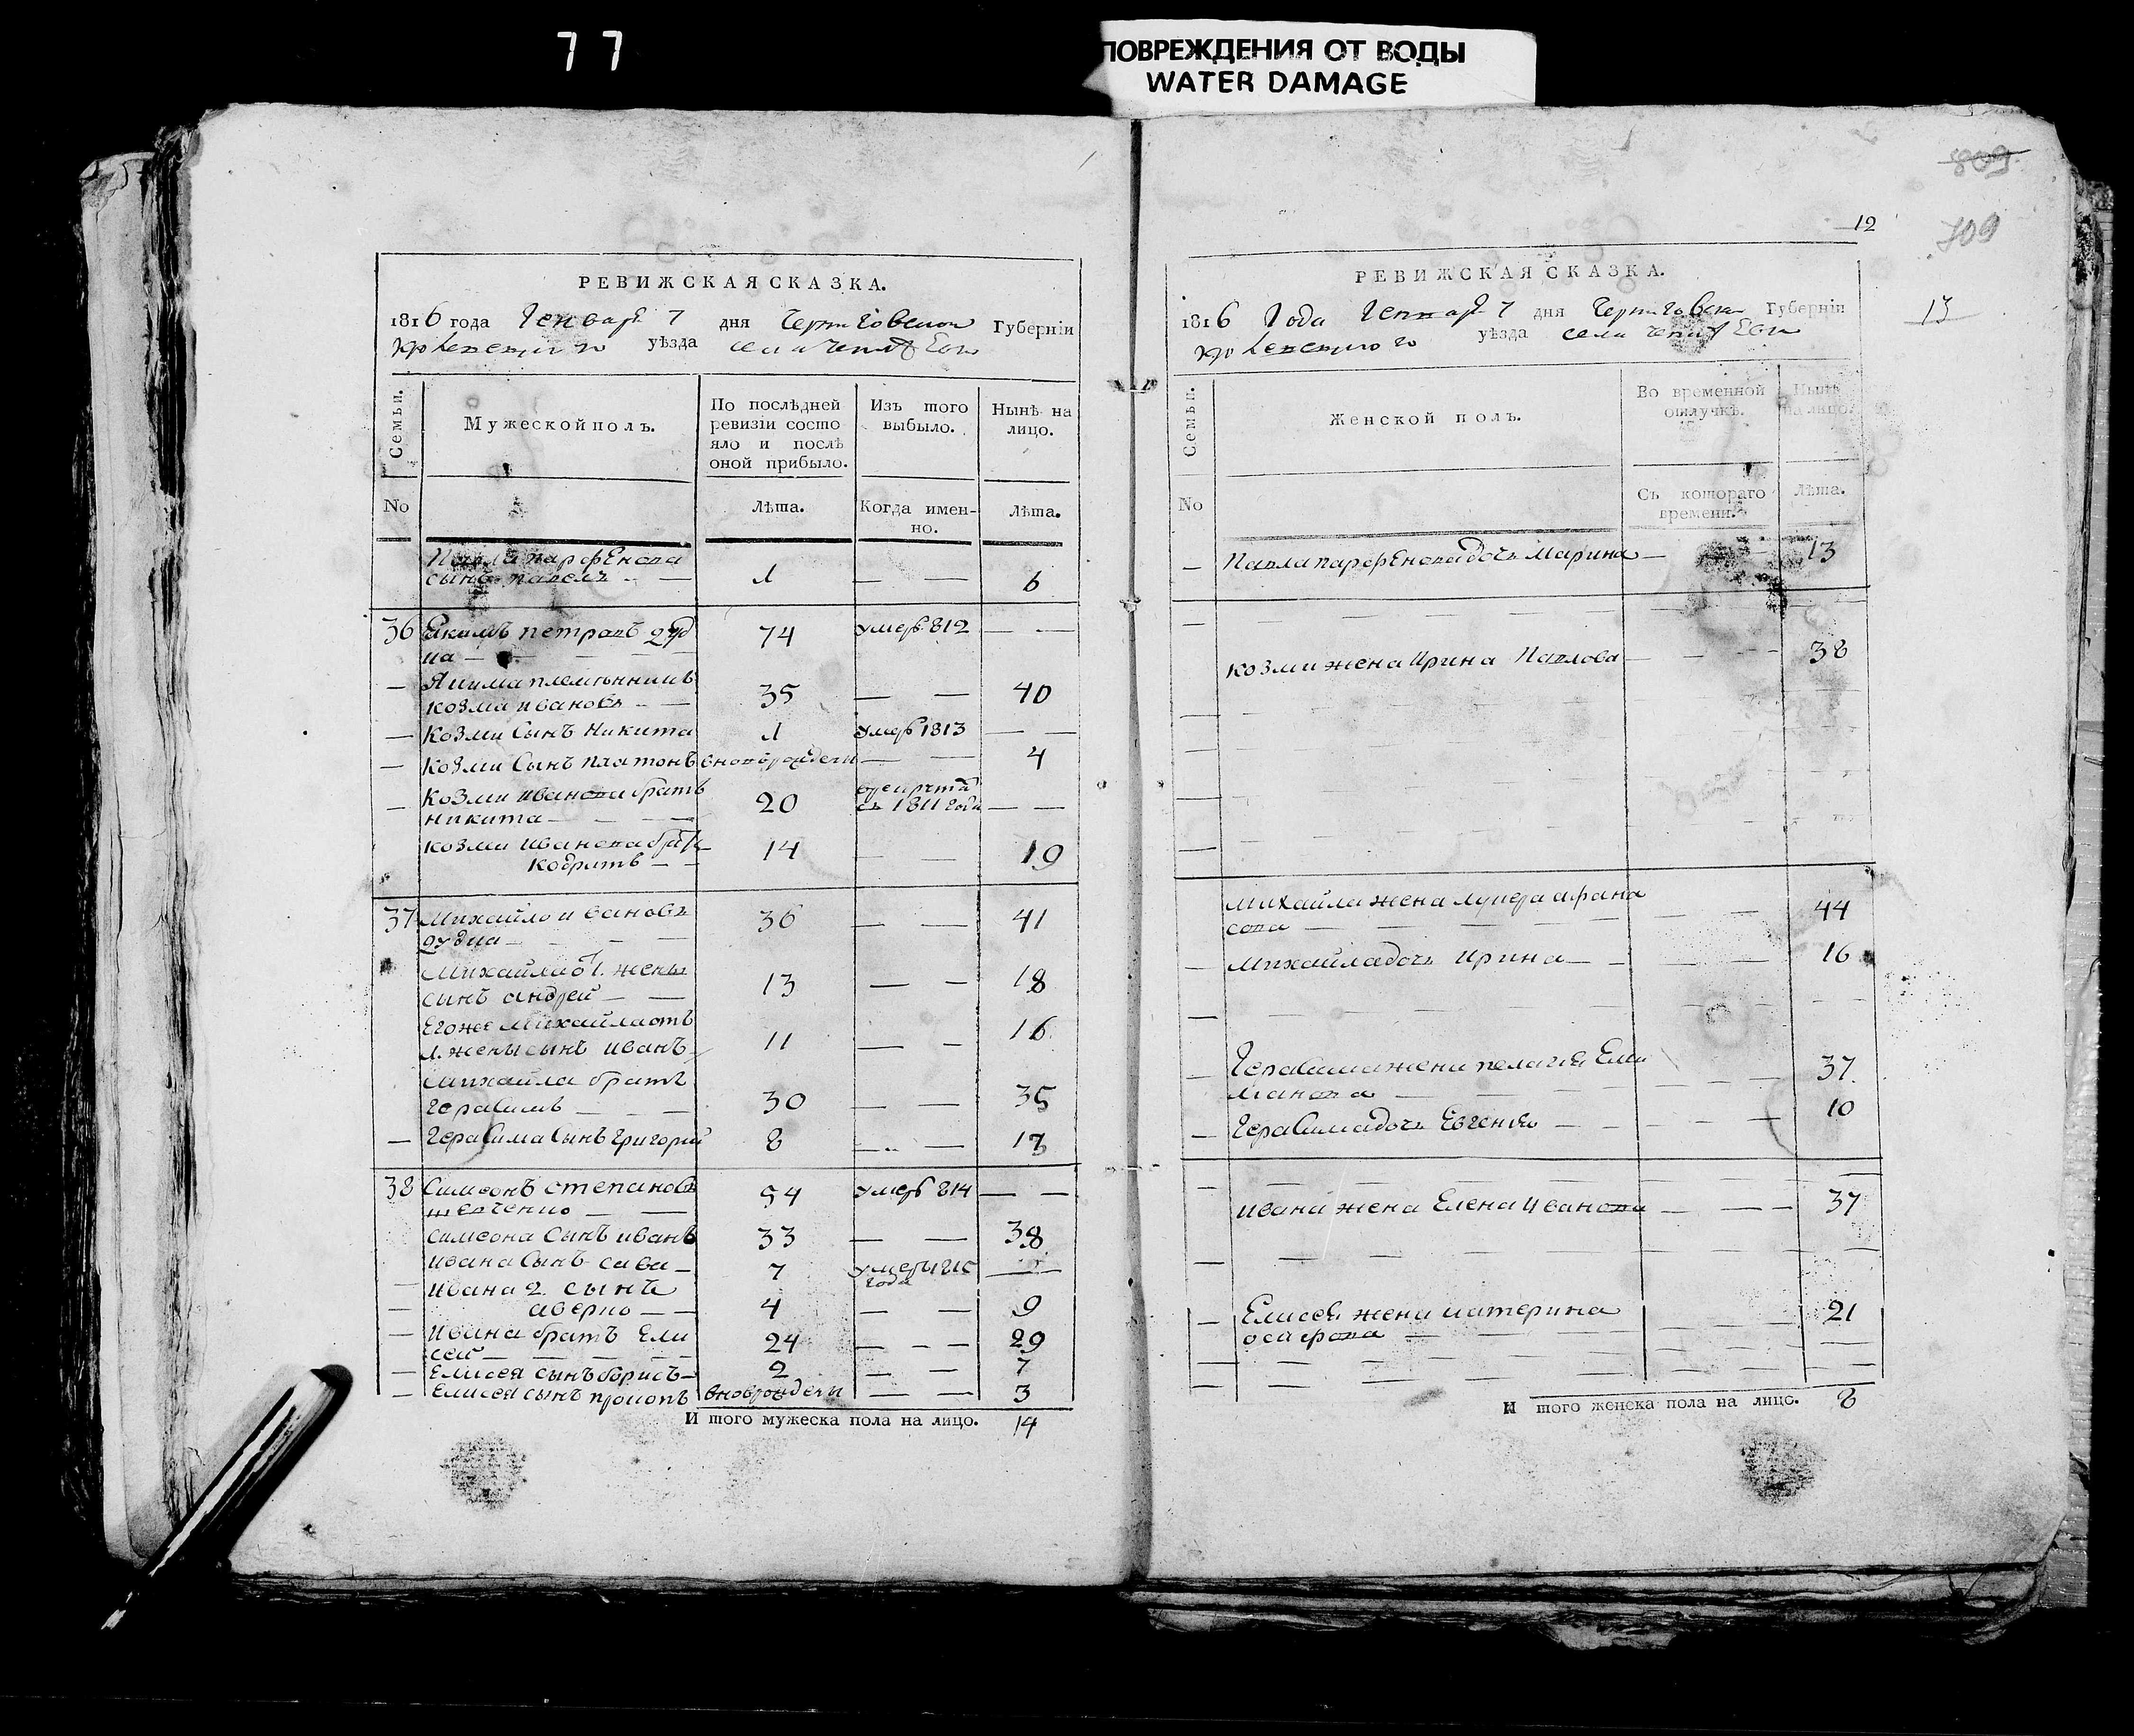 77
ПОВРЕЖДЕНИЯ ОТ ВОДЫ
WATER DAMAGE
809
709
12
13
РЕВИЖСКАЯ СКАЗКА.
1816 года Генваря 7 дня Черниговской Губерніи
кролевецкого уѣзда села
Семьи.
Мужеской полъ.
По послѣдней ревизіи состо
яло и послѣ оной прибыло.
Изъ того выбыло.
Нынѣ на лицо.
No
Лѣта.
Когда имен-
но.
Лѣта.
Павла парфенова
сынъ павелъ — 1 — — 6
36 Екимъ петровъ 74 умеръ 812 — —
Якима племянникъ
козма ивановъ — 35 — — 40
Козми Сынъ Никита 1 умеръ 1813 — —
Козми Сынъ платонъ вноворожденъ — — 4
Козми иванова братъ
никита — 20 съ 1811 года — —
козми иванова братъ
кодратъ — 14 — — 19
37 Михайло ивановъ
дудка — 36 — — 41
Михайла от 1. жены
сынъ андрей — 13 — — 18
Егоже Михайла отъ
1. жены сынъ иванъ 11 — — 16
Михайла братъ
герасимъ — 30 — — 35
Герасима Сынъ григорий 8 — — 13
38 Симеонъ степановъ
шевченко — 54 умеръ 814 — —
симеона Сынъ иванъ 33 — — 38
ивана Сынъ сава — 7 умеръ 1815
года —
ивана 2 сынъ
аверко — 4 — — 9
ивана братъ Ели
сей — 24 — — 29
Елисея сынъ борисъ — 2 — — 7
Елисея сынъ прокопъ вноврожденъ — — 3
И того мужеска пола на лицо. 14
РЕВИЖСКАЯ СКАЗКА.
1816 Года Генваря 7 дня Черниговской Губерніи
кролевецкого уѣзда села
Семьи.
Женской полъ.
Во временной
отлучкѣ.
Нынѣ
на лицо.
No
Съ котораго
времени.
Лѣта.
Павла парфенова дочь Марина — 13
козми жена Ирина Павлова — 38
михайла жена лукера афана
сова — 44
михайла дочь ирина — 16
Герасима жена пелагея Еми
лианова — 37
Герасима дочь Евгения — 10
ивана жена Елена иванова — 37
Елисея жена катерина
осипова — 21
И того женска пола на лицо. 8